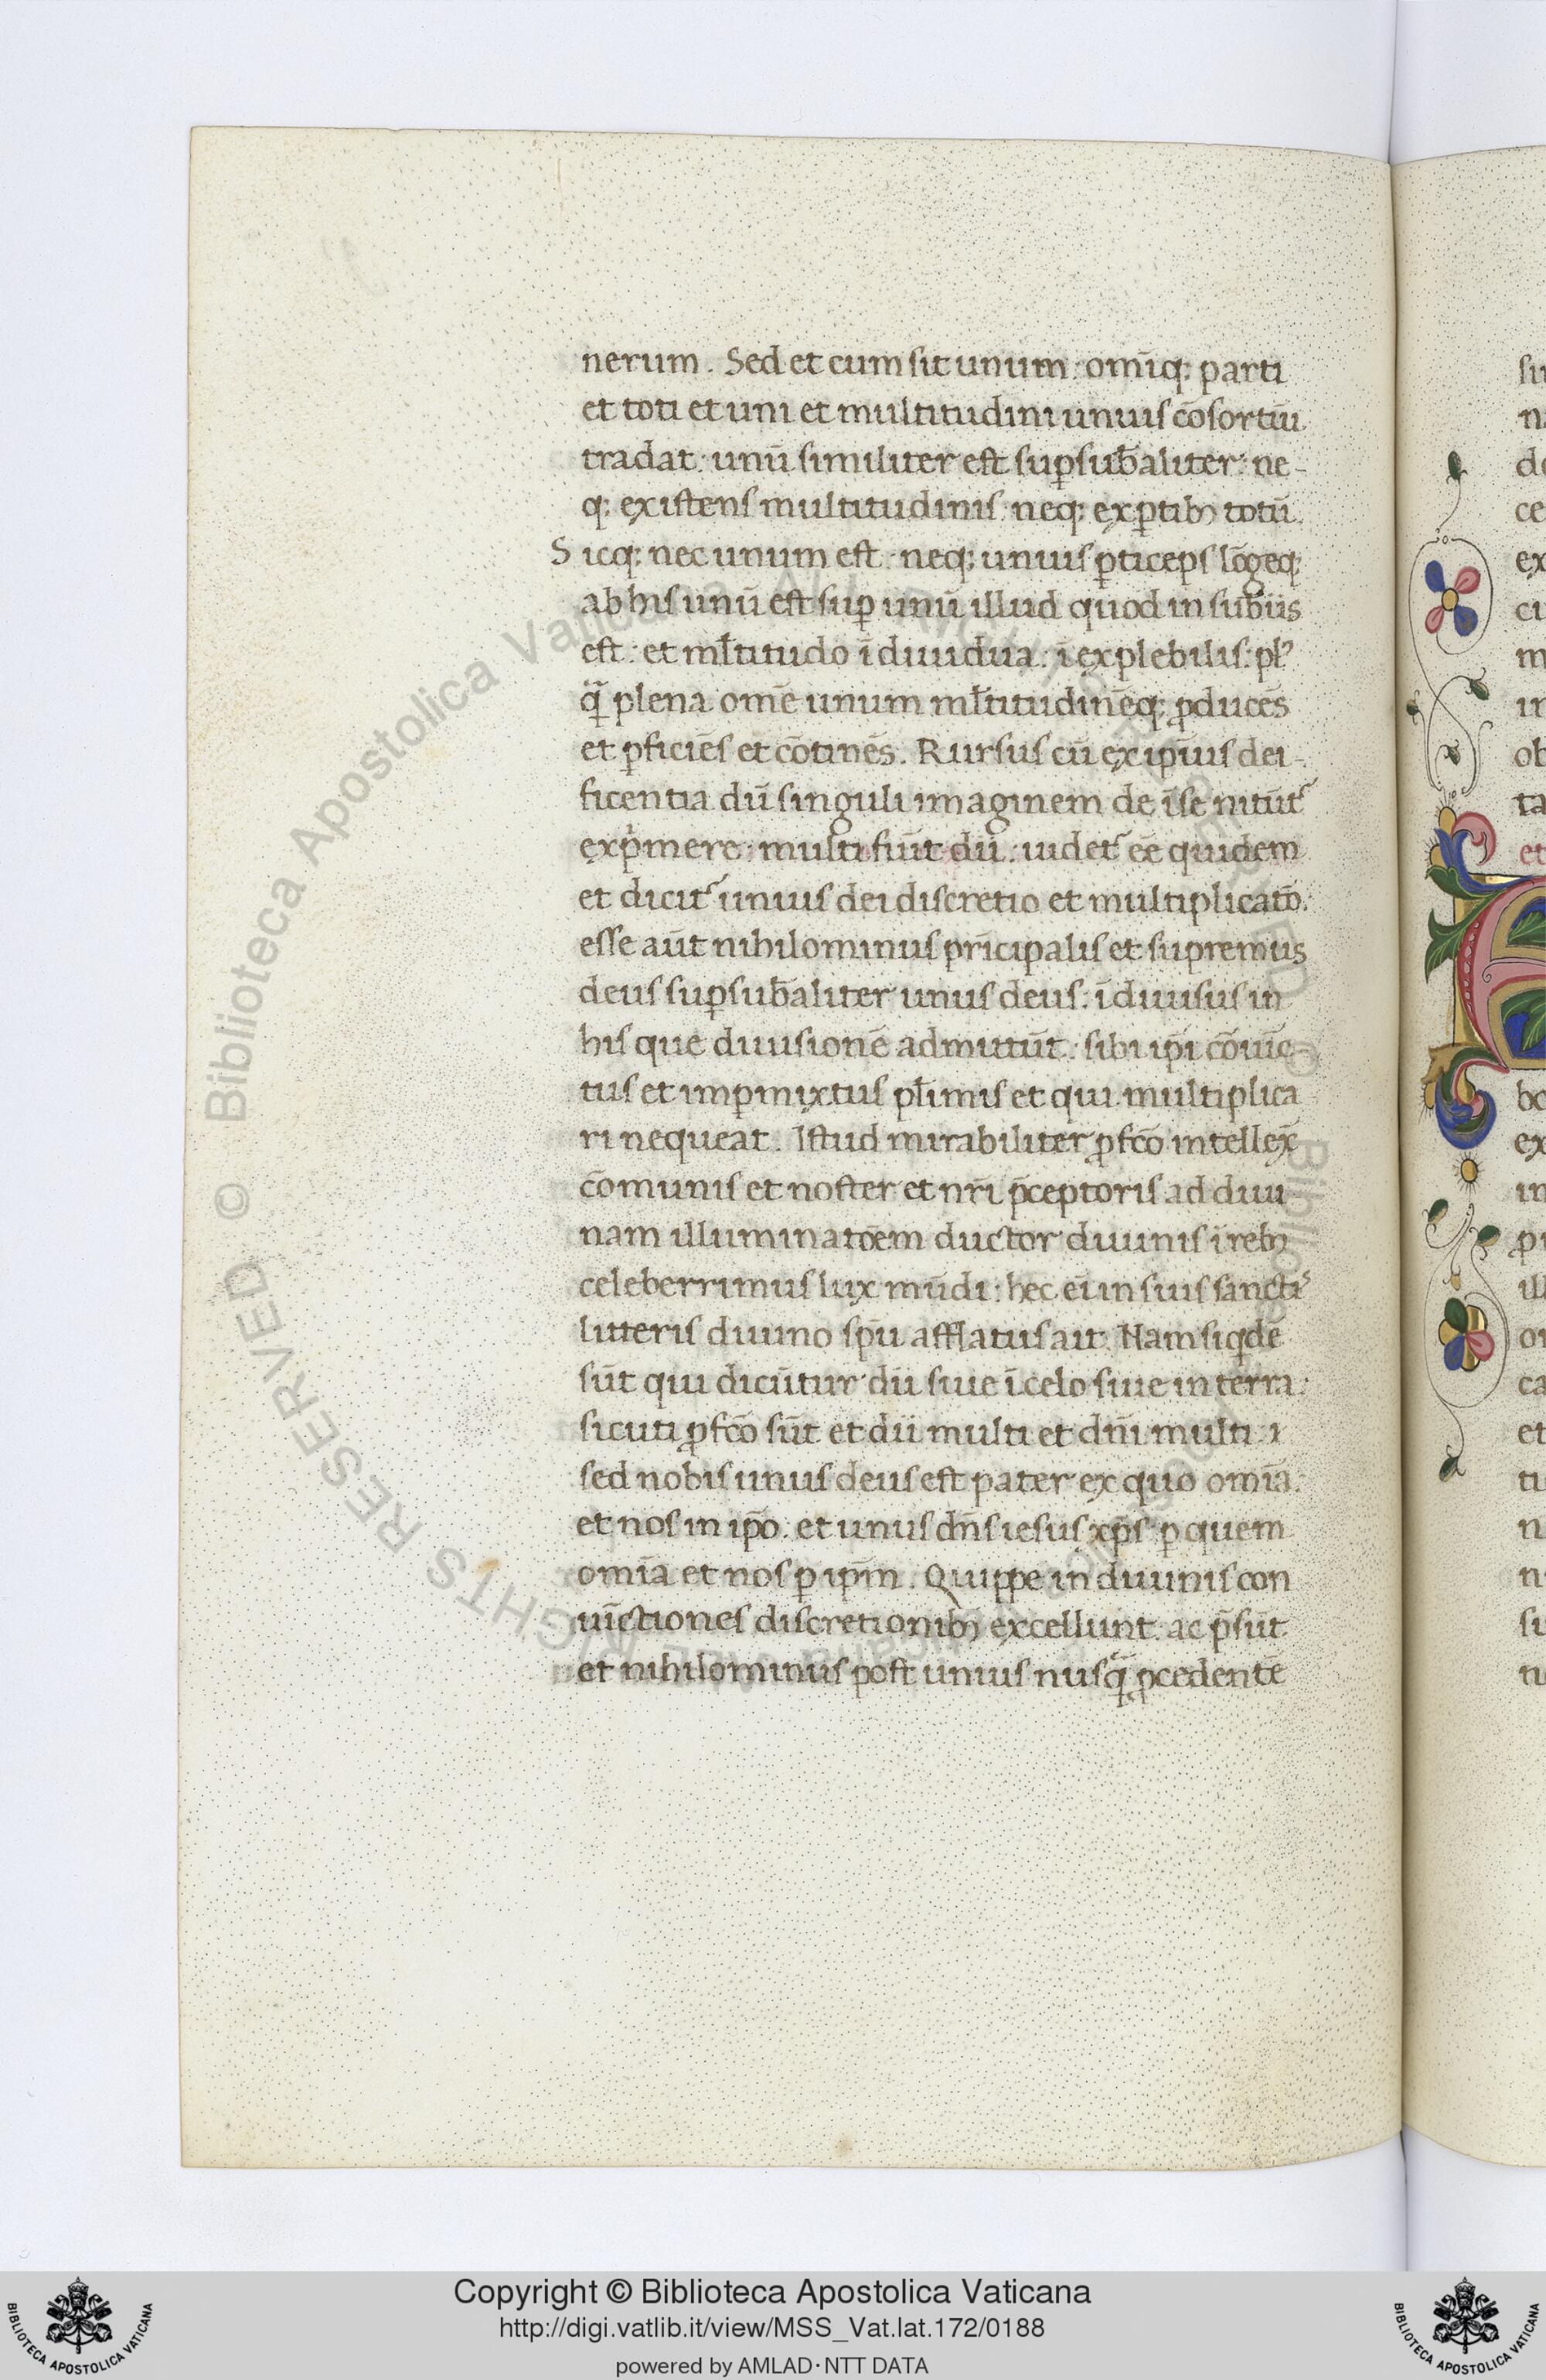 nerum. Sed et cum sit unum: om̄iq; parti
et toti et uni et multitudini unius cōsortiū
tradat: unū similiter est suꝑsub̄aliter: ne-
q; existens multitudinis: neq; exꝑtibꝫ totū.
Sicq; nec unum est: neq; unius ꝑticeps lōgeq;
ab his unū est suꝑ unū illud quod in sub̄iis
est: et ml̄titudo īdiuidua: īexplebilis: pl'
q̄ plena omē unum ml̄titudinēq; ꝓducēs
et ꝑficiēs et cōtinēs. Rursus cū ex ip̄ius dei-
ficentia dū singuli imaginem de īse nitūt᷑
exp̍mere: multi fiūt dii: uidet᷑ eē quidem
et dicit᷑ unius dei discretio et multiplicatō:
esse aūt nihilominus prīcipalis et supremus
deus suꝑsub̄aliter unus deus: īdiuisus in
his que diuisionē admittūt: sibi ip̄i cōuīc-
tus et imꝑmixtus pl̄imis et qui multiplica
ri nequeat. Istud mirabiliter ꝓfc̄o intellex̄
cōmunis et noster et nr̄i p̄ceptoris ad diui
nam illuminatōem ductor diuinis ī rebꝫ
celeberrimus lux mūdi: hec ei in suis sancti᷑
litteris diuino sp̄u afflatus ait. Nam siqdē
sūt qui dicūtur dii siue ī celo siue in terra:
sicuti ꝓfc̄o sūt et dii multi et dn̄i multi: ı
sed nobis unus deus est pater ex quo om̄ia:
et nos in ip̄o: et unus dn̄s iesus xp̄s: ꝑ quem
om̄ia et nos ꝑ ip̄m. Quippe in diuinis con
uīctiones discretionibꝫ excellunt: ac p̄sūt
et nihilominus post unius nusq̄ ꝓcedentē
Copyright © Biblioteca Apostolica Vaticana
http://digi.vatlib.it/view/MSS_Vat.lat.172/0188
powered by AMLAD·NTT DATA